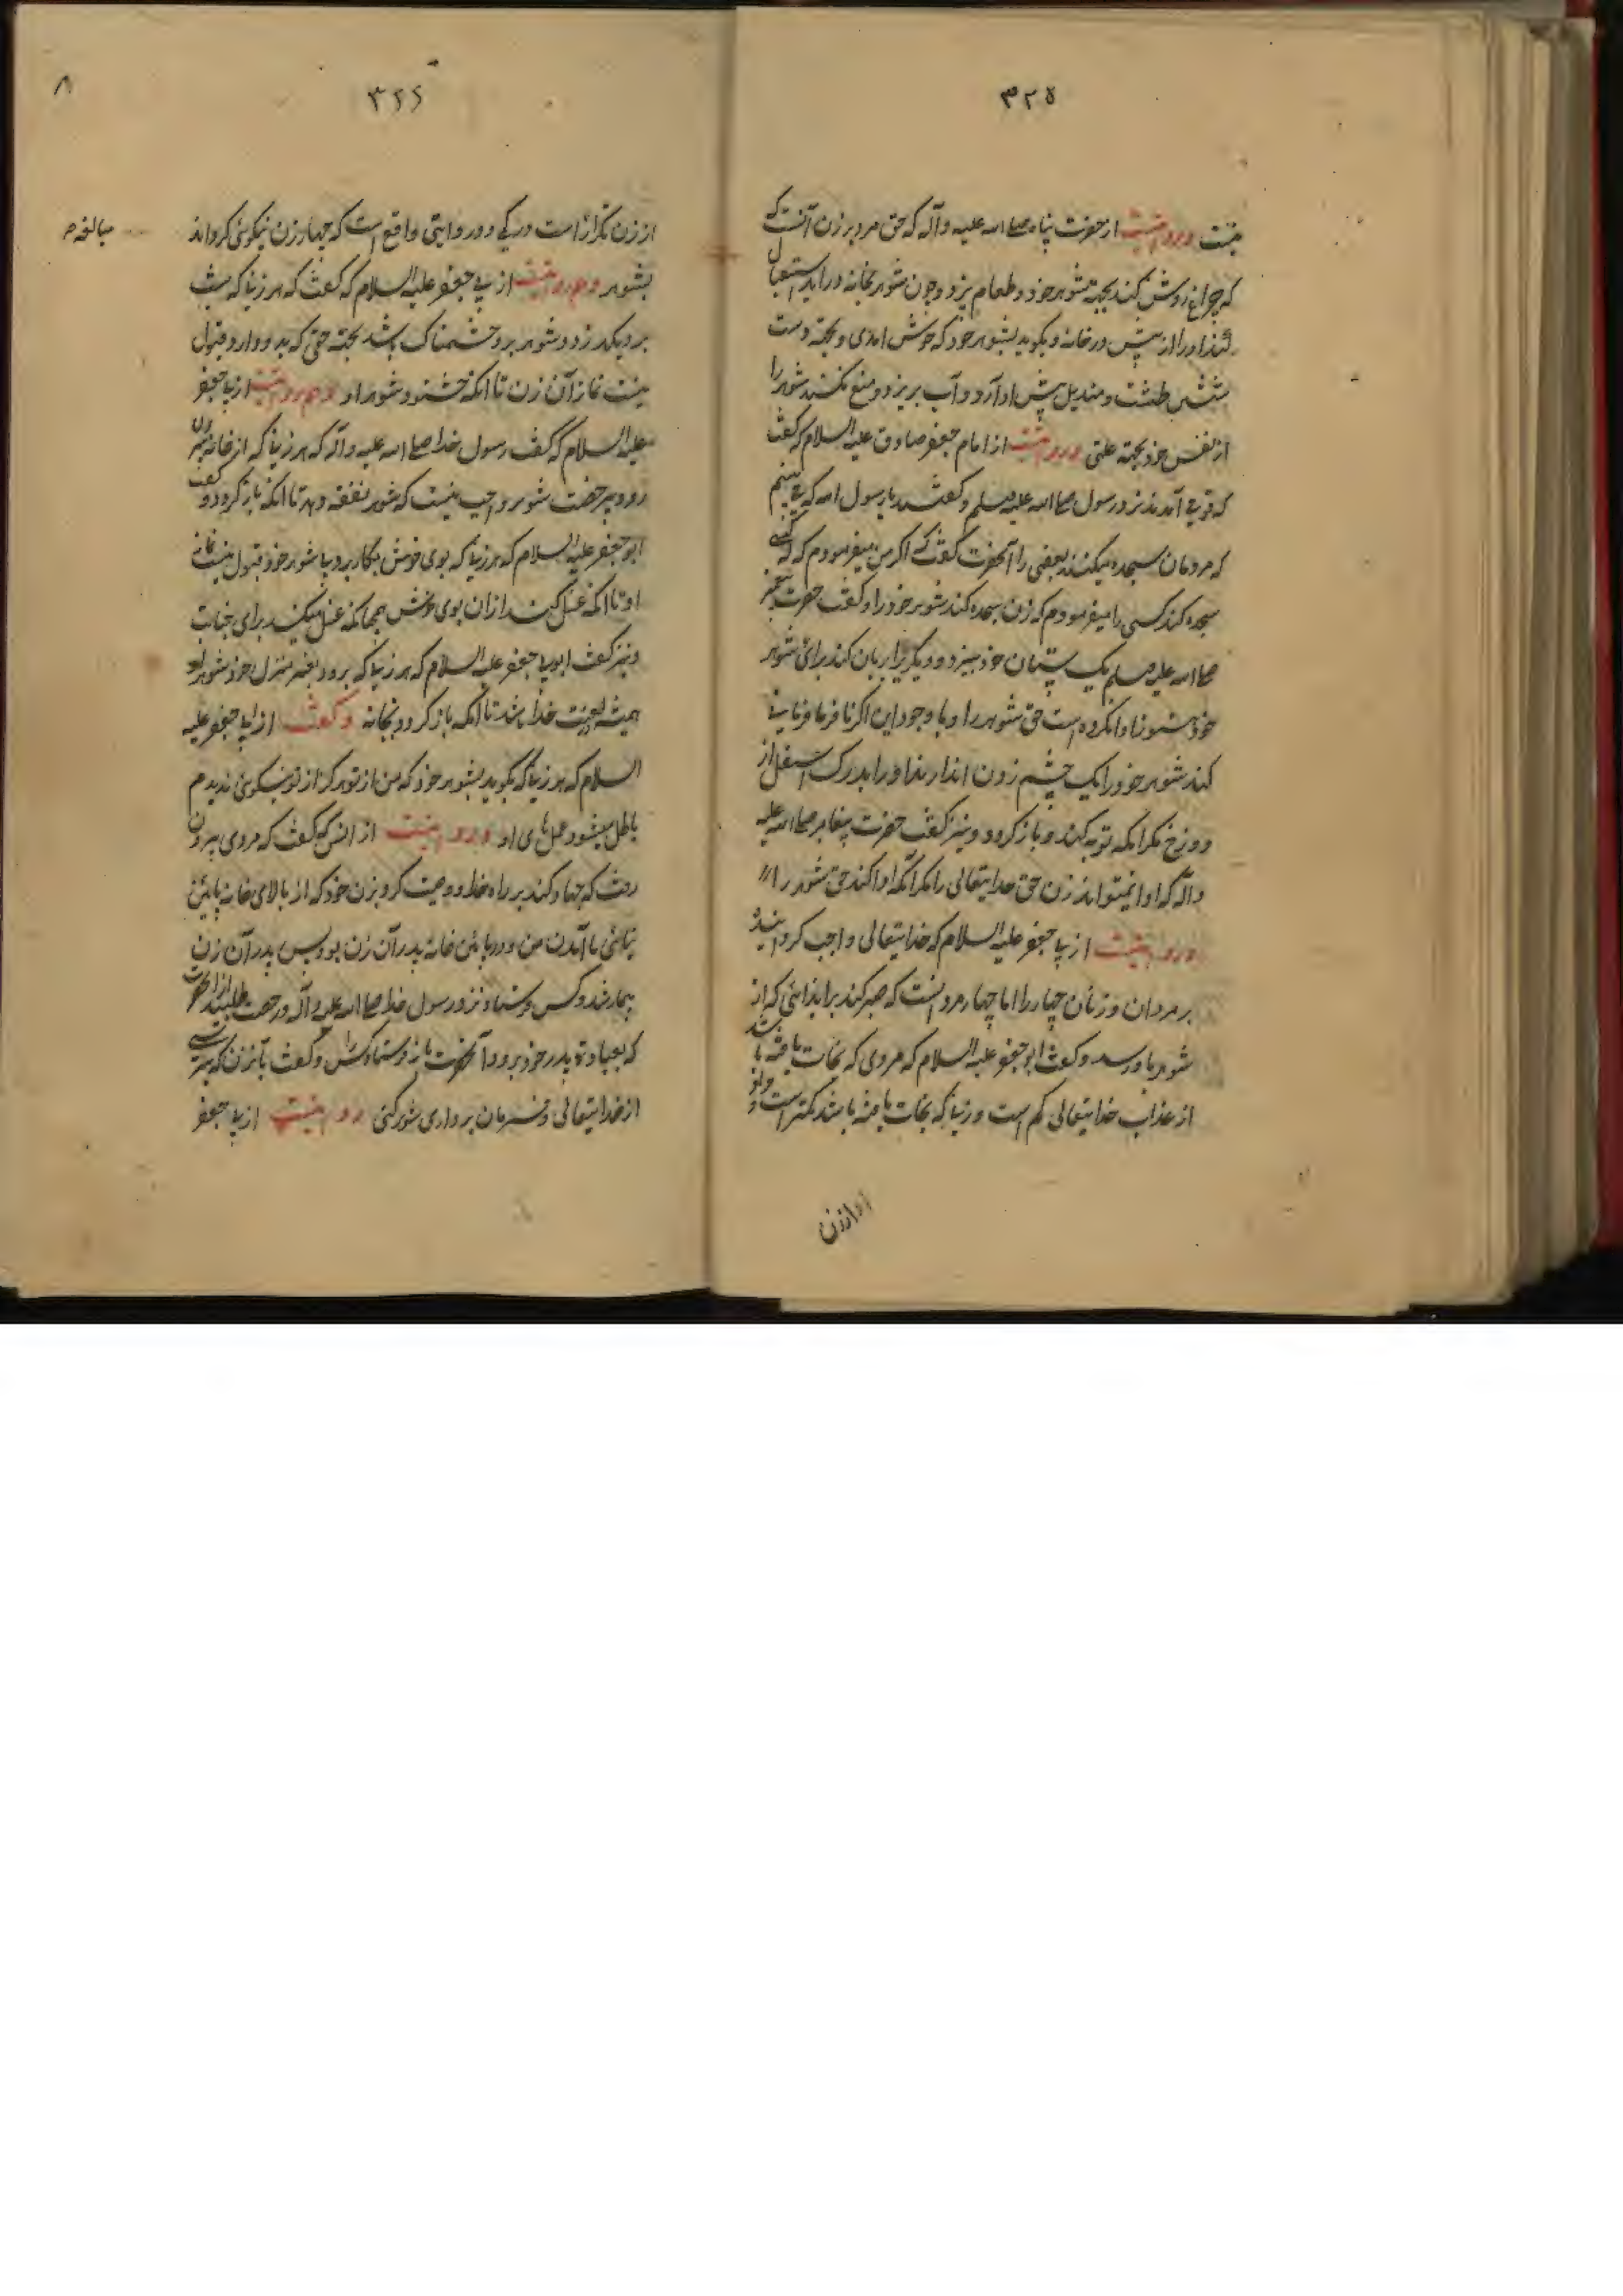 ۳۲۵
نیست و روایتست از حضرت پناه صلی الله علیه وآله که حق مرد بر زن آنست که
که چراغ روشن کند بجهة شوهر خود و طعام پزد و چون شوهر بخانه در آید استقبال
کند او را از پیش در خانه و بگوید بشوهر خود که خوش امدی و بجهة دست
شستن طشت و مندیل پیش او آرد و آب بریزد و منع نکند شوهر را
از نفس خود بجهة علتی و روایتست از امام جعفر صادق علیه السلام که گفت
که قومی آمدند نزد رسول صلی الله علیه وسلم و گفتند یا رسول الله که می بینیم
که مردمان سجده میکنند بعضی را آنحضرت گفت که اگر من میفرمودم که کسی
سجده کند کسی را میفرمودم که زن سجده کند شوهر خود را و گفت حضرت پیغمبر
صلی الله علیه وسلم یک پستان خود بپزد و دیگریرا بریان کند برای شوهر
خود هنوز ادا نکرده است حق شوهر را و با وجود این اگر نافرمانی
کند شوهر خود را یک چشم زدن اندازند او را بدرک اسفل از
دوزخ مگر انکه توبه کند و باز گردد و نیز گفت حضرت پیغامبر صلی الله علیه
وآله که ادا نمیتواند زن حق خدایتعالی را مگر آنکه ادا کند حق شوهر را
و روایتست از ابی جعفر علیه السلام که خدایتعالی واجب گردانیده
بر مردان و زنان جهاد را اما جهاد مرد آنست که صبر کند بر ایذائی که از
شوهر باو رسد و گفت ابو جعفر علیه السلام که مردی که نجات یافته باشد
از عذاب خدایتعالی کم است و زنیکه نجات یافته باشد کمتر است و
از زن
۳۲۶
۸
از زن نگزار است در یکی و در روایتی واقع است که جهاد زن نیکوئی کردن اند
مبالغه م
بشوهر و هم روایتست از ابی جعفر علیه السلام که گفت که هر زنیکه شب
برو بگذرد و شوهر برو خشمناک باشد بجهة حقی که بدو دارد قبول
نیست نماز آن زن تا انکه خشنود شود او و هم روایتست از ابی جعفر
علیه السلام که گفت رسول خدا صلی الله علیه وآله که هر زنیکه از خانه بیرون
رود بی رخصت شوهر واجب نیست که شوهر نفقه دهد تا انکه باز گردد و گفت
ابو جعفر علیه السلام که هر زنیکه بوی خوش بکار برد با شوهر خود قبول نیست نماز
او تا انکه غسل کند از ان بوی خوش همچنانکه غسل میکند برای جنابت
و نیز گفت ابی جعفر علیه السلام که هر زنیکه برود بغیر منزل خود شوهر او
همیشه لعنت خدا باشد تا انکه باز گردد بخانه و گفت از ابی جعفر علیه
السلام که هر زنیکه بگوید بشوهر خود که من از تو هرگز از تو نیکوئی ندیدم
باطل میشود عمل های او و روایتست از انس که گفت که مردی بیرون
رفت که جهاد کند بر راه خدا و وصیت کرد بزن خود که از بالای خانه پائین
نیائی تا آمدن من و در پائین خانه پدر آن زن بود پس پدر آن زن
بیمار شد و کس فرستاد نزد رسول خدا صلی الله علیه وآله و رخصت طلبید از انحضرت
که بعیادت پدر خود برود آنحضرت باز فرستاد کس را و گفت بآنزن که بترسی
از خدایتعالی و فرمان برداری شوهر کنی روایتست از ابی جعفر